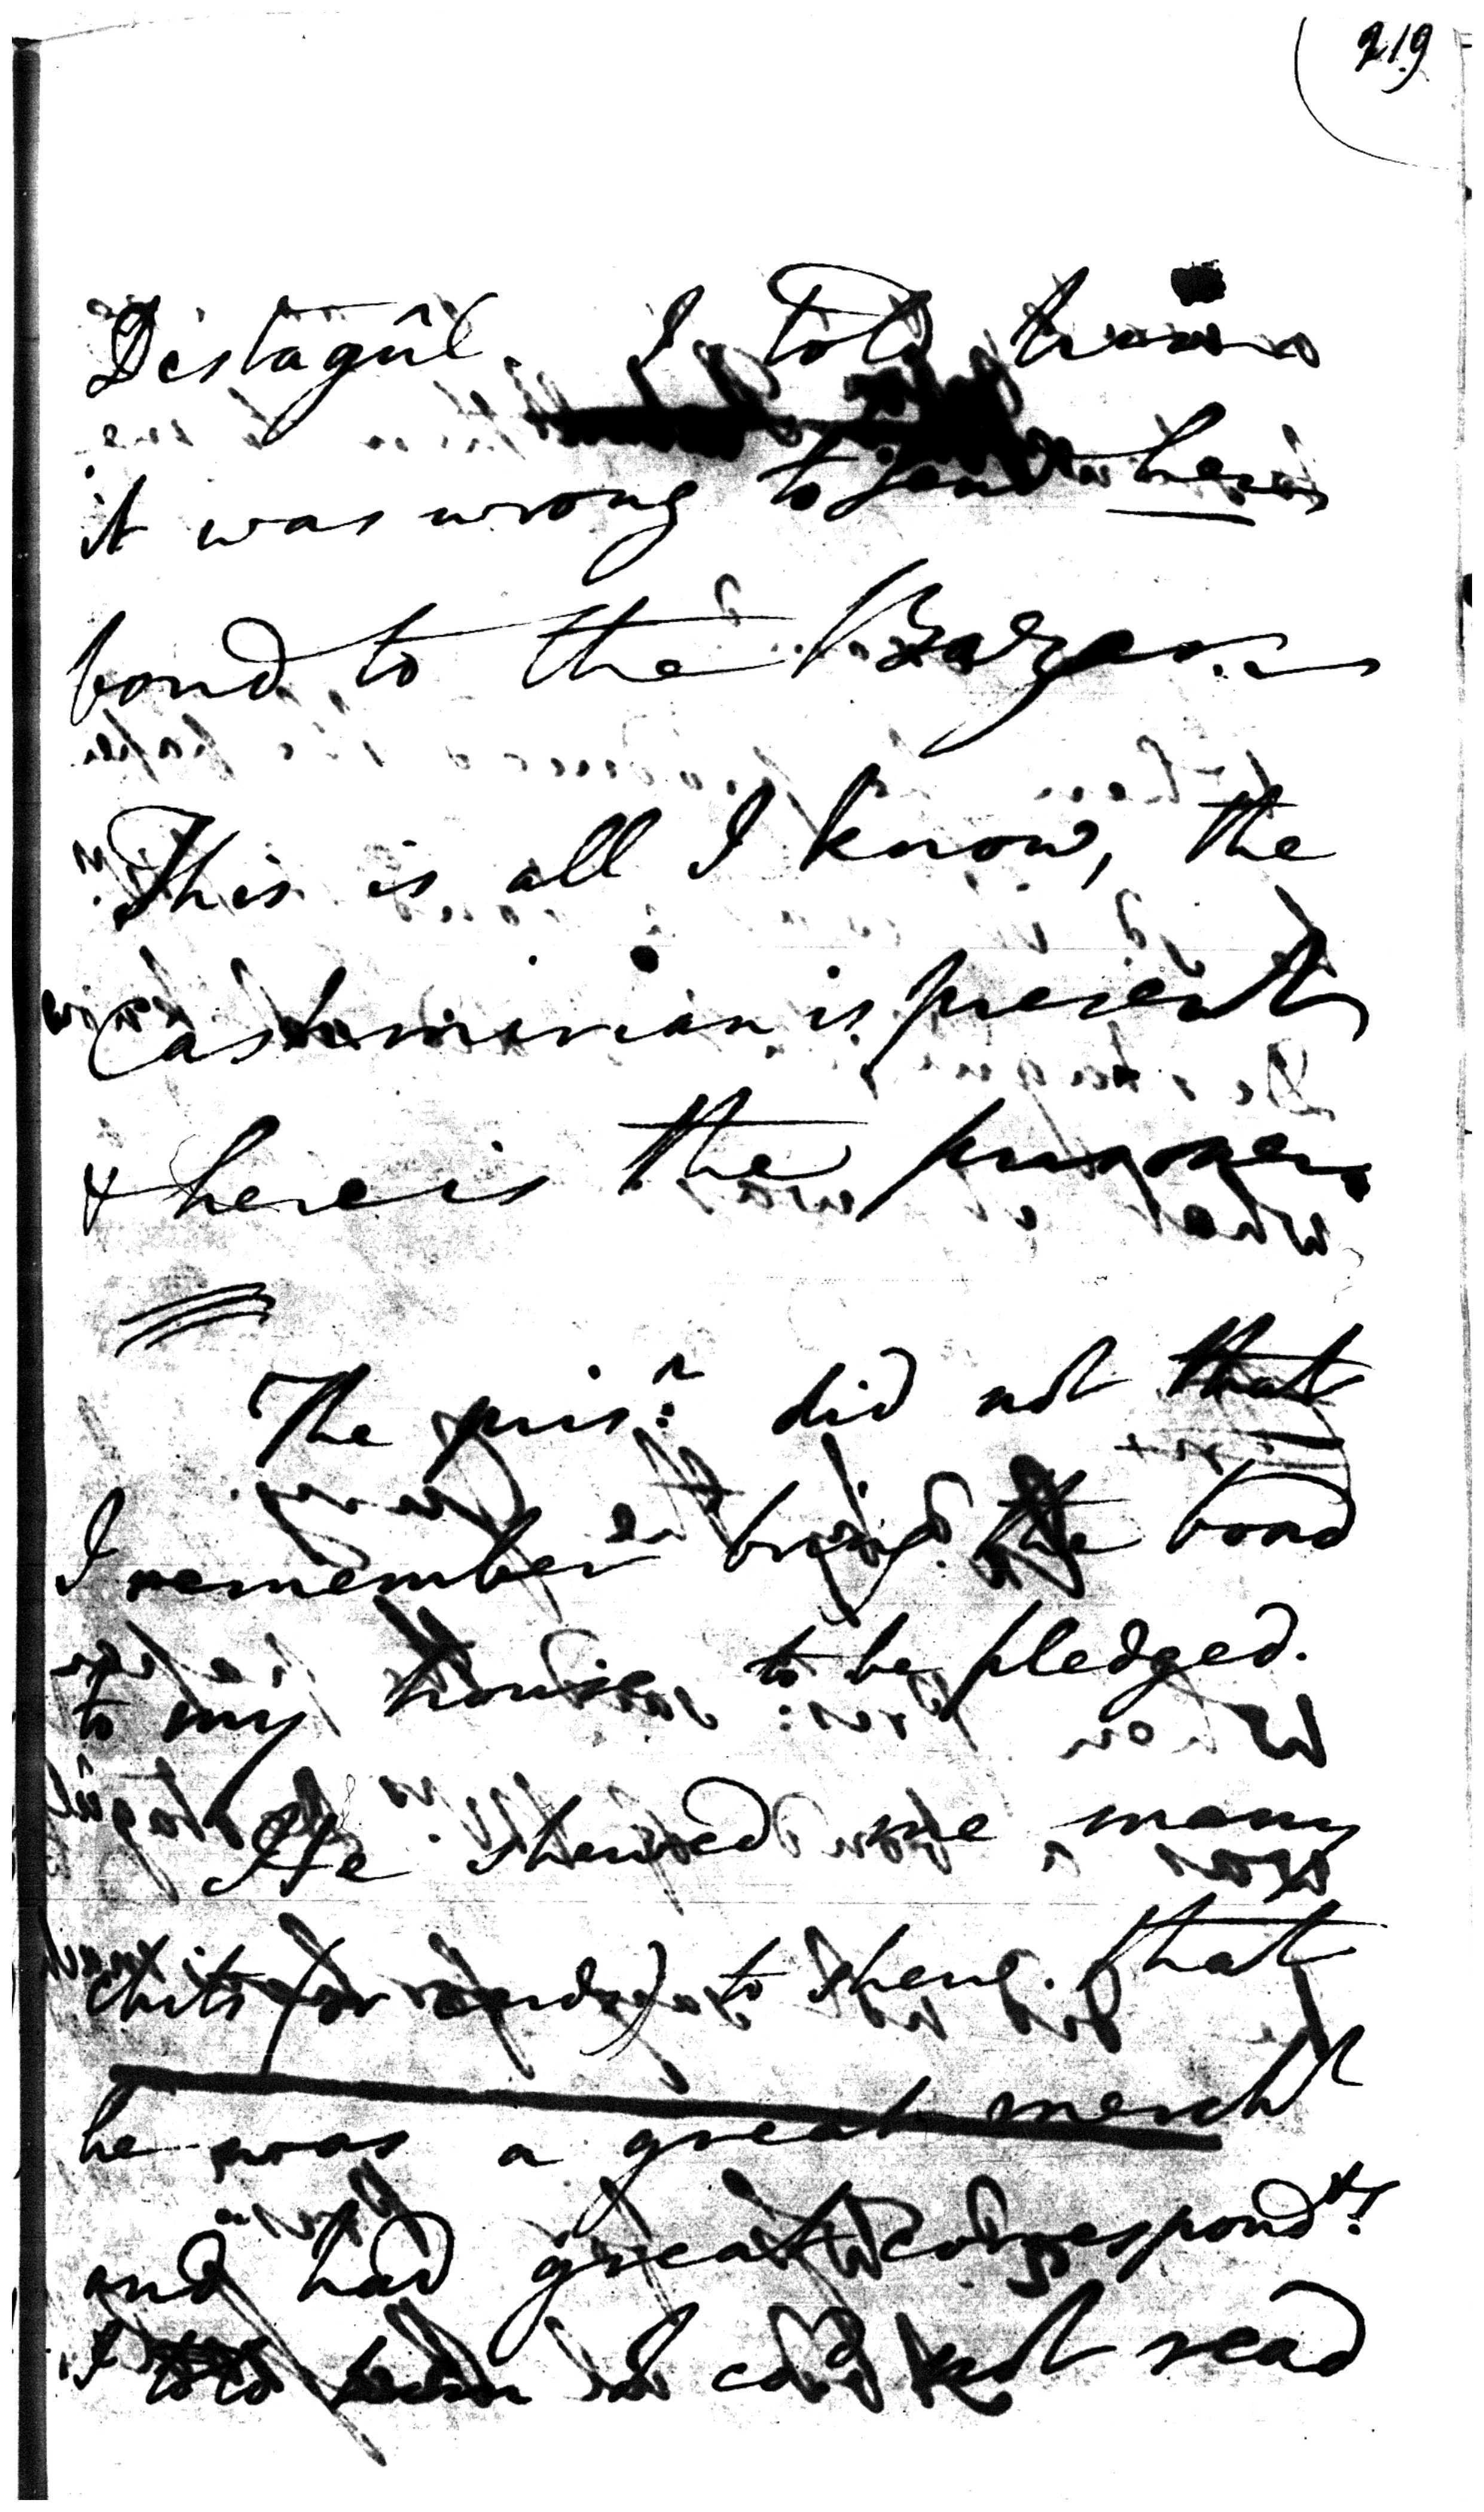 219
Distagûl. I told him
it was wrong to send her
bond to the Bazar.
This is all I know, the
Cashmirian is present,
& here is the prisoner
The pris.r did not that
I remember bring the bond
to my house to be pledged.
He shewed me many
chits (or cards) to shew that
he was a great mercht
and had great correspond.ts
I told him cod not read